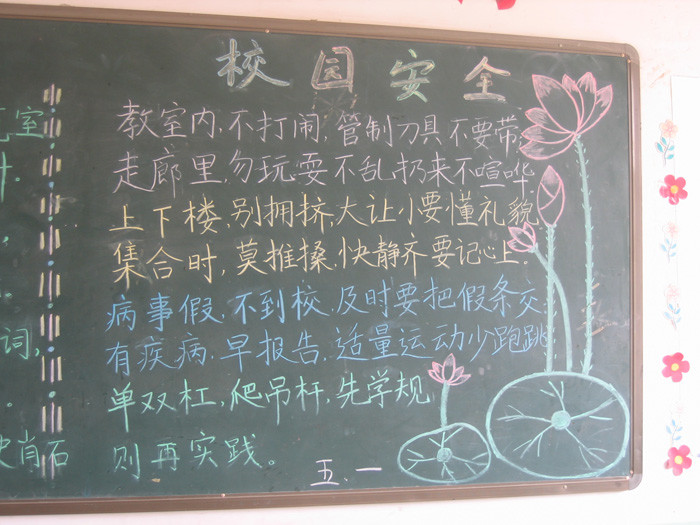 校园安全
教室内,不打闹,管制刀具不要带,
走廊里,勿玩耍不乱扔来不喧哗
上下楼,别拥挤,大让小要懂礼貌
集合时,莫推搡,快静齐要记心上,
病事假,不到校,及时要把假条交
有疾病,早报告,适量运动少跑跳
单双杠,爬吊杆,先学规
则再实践。
五、一
室
词,
肖石